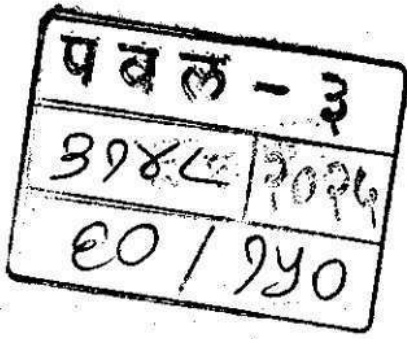 पवल - ३
३१४८ २०२५
६० / १५०